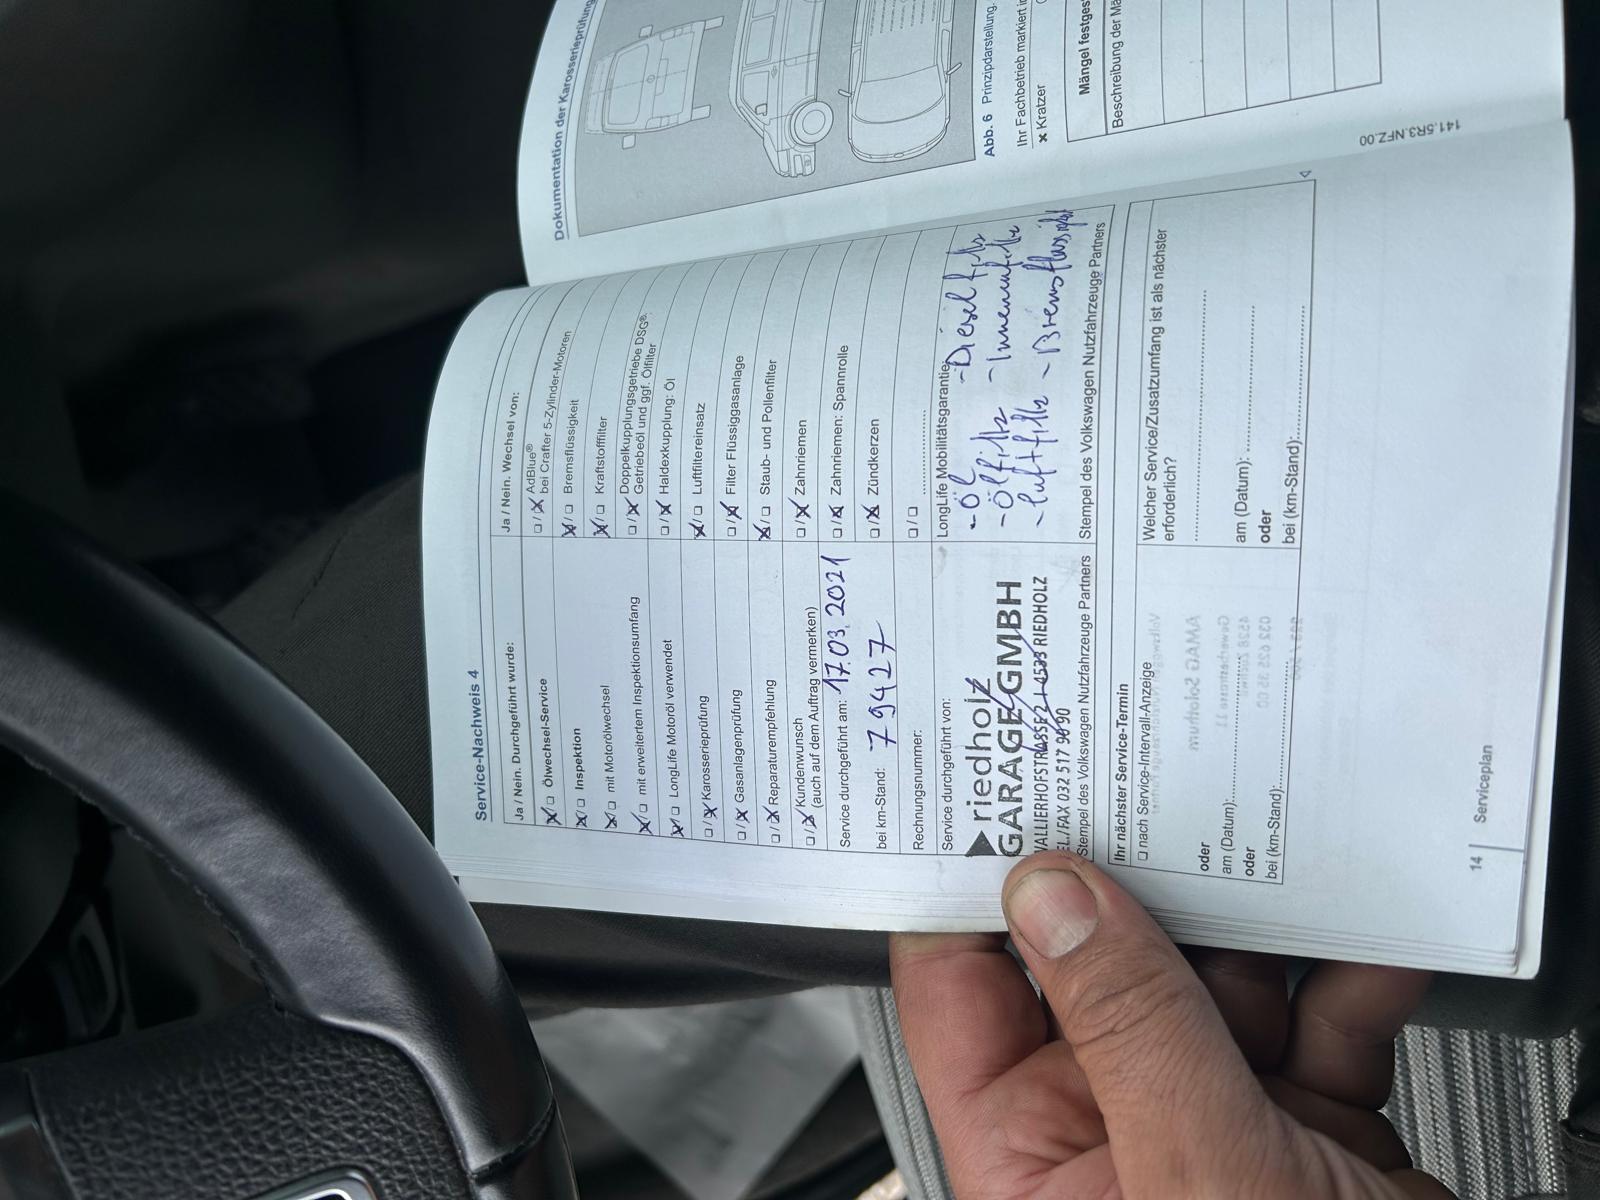 Service-Nachweis 4
Ja / Nein. Durchgeführt wurde:
Ölwechsel-Service
Inspektion
mit Motorölwechsel
mit erweitertem Inspektionsumfang
LongLife Motoröl verwendet
Karosserieprüfung
Gasanlagenprüfung
Reparaturempfehlung
Kundenwunsch
(auch auf dem Auftrag vermerken)
Service durchgeführt am: 17.03.2021
bei km-Stand: 79427
Rechnungsnummer:
Ja / Nein. Wechsel von:
AdBlue®
bei Crafter 5-Zylinder-Motoren
Bremsflüssigkeit
Kraftstofffilter
Doppelkupplungsgetriebe DSG®:
Getriebeöl und ggf. Ölfilter
Haldexkupplung: Öl
Luftfiltereinsatz
Filter Flüssiggasanlage
Staub- und Pollenfilter
Zahnriemen
Zahnriemen: Spannrolle
Zündkerzen
Service durchgeführt von:
riedholz
GARAGE GMBH
WALLIERHOFSTRASSE 2 4533 RIEDHOLZ
TEL./FAX 032 517 90 90
Stempel des Volkswagen Nutzfahrzeuge Partners
LongLife Mobilitätsgarantie:
- Öl - Dieselfilter
- Ölfilter - Innenfilter
- Luftfilter - Bremsflüssigkeit
Stempel des Volkswagen Nutzfahrzeuge Partners
Ihr nächster Service-Termin
nach Service-Intervall-Anzeige
oder
am (Datum):
oder
bei (km-Stand):
Welcher Service/Zusatzumfang ist als nächster
erforderlich?
am (Datum):
oder
bei (km-Stand):
14
Serviceplan
Dokumentation der Karosserieprüfung
Abb. 6 Prinzipdarstellung.
Ihr Fachbetrieb markiert
x Kratzer
Mängel festges
Beschreibung der Mä
141.5R3.NFZ.00